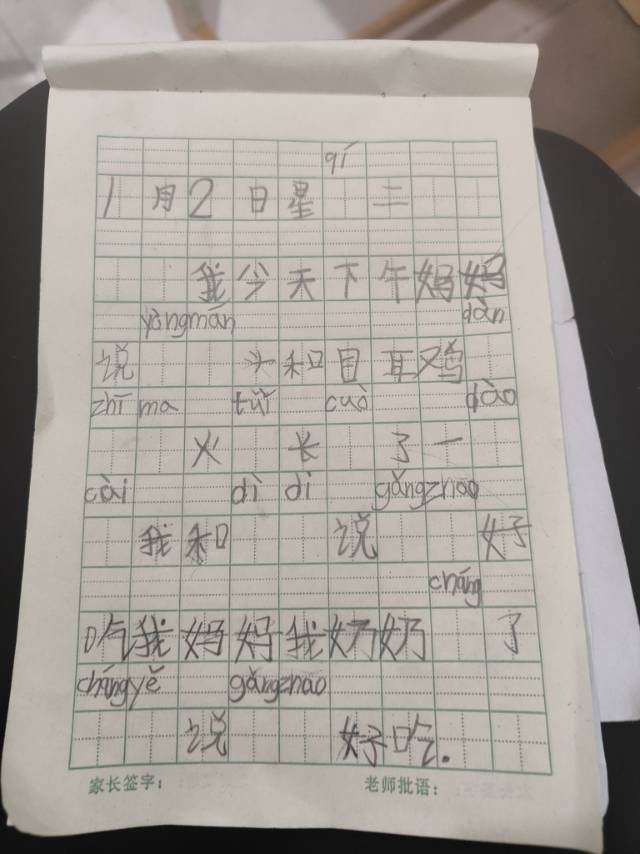 qí
1月2日星 二
我今天下午妈妈
yòngmán dàn
说 头和目耳鸡
zhī ma tuǐ cuò dào
火 长 了一
cài dì di gǎngzhāo
我和 说 好
cháng
吃我妈妈我奶奶 了
chángyě gǎngzhāo
说 好吃.
家长签字: 老师批语: